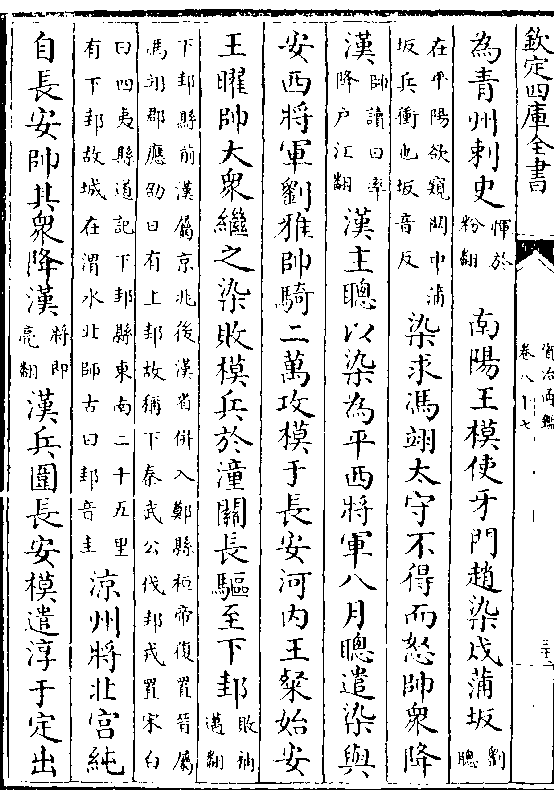 欽定四庫全書
資治通鑑
卷八十七
為青州刺史惲於粉翻南陽王模使牙門趙染戍蒲坂劉聰
在平陽欲窺關中蒲坂兵衝也坂音反染求馮翊太守不得而怒帥衆降
漢帥讀曰率降户江翻漢主聰以染為平西將軍八月聰遣染與
安西將軍劉雅帥騎二萬攻模于長安河内王粲始安
王曜帥大衆繼之染敗模兵於潼關長驅至下邽敗補邁翻
下邽縣前漢屬京兆後漢省併入鄭縣桓帝復置晉屬馮翊郡應劭曰有上邽故稱下秦武公伐邽戎置宋白
曰四夷縣道記下邽縣東南二十五里有下邽故城在渭水北師古曰邽音圭涼州將北宮純
自長安帥其衆降漢將即亮翻漢兵圍長安模遣淳于定出